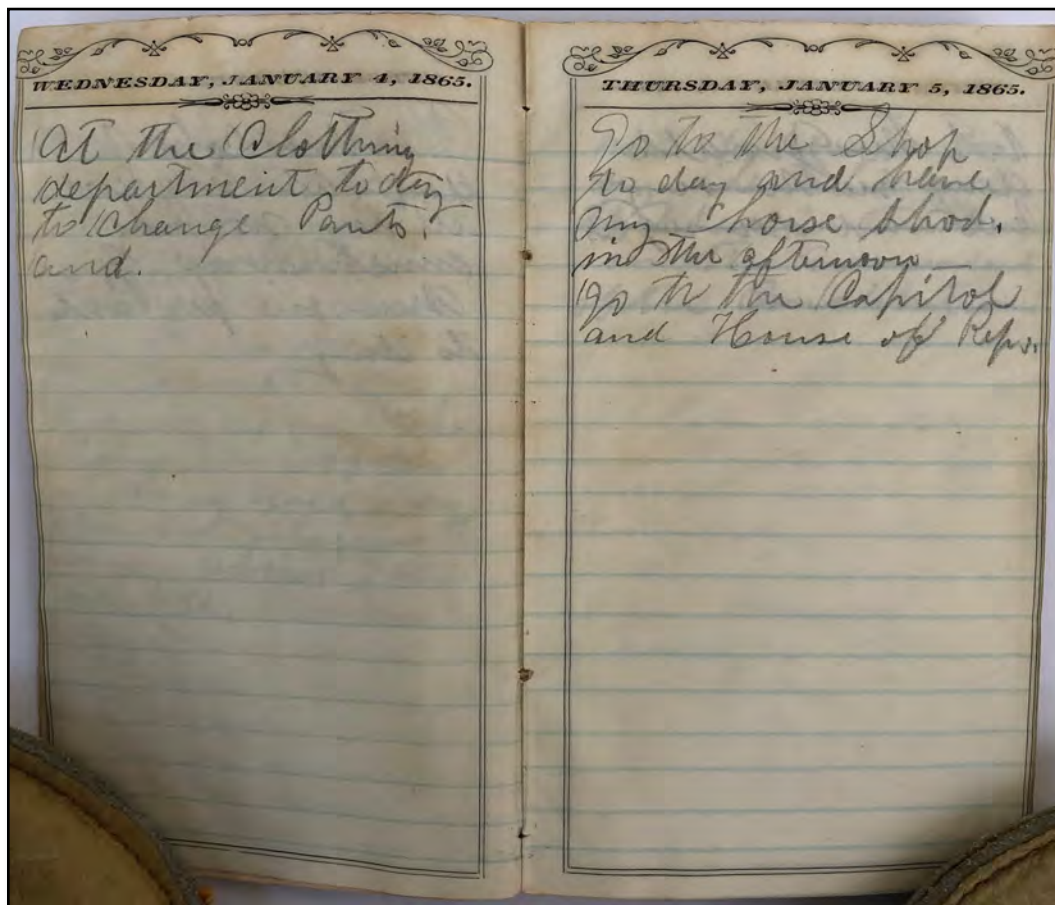 WEDNESDAY, JANUARY 4, 1865.
At the Clothing
department to day
to change Pants.
and.
THURSDAY, JANUARY 5, 1865.
Go to the Shop
to day and have
my horse shod.
in the afternoon
go to the Capitol
and House of Reps.